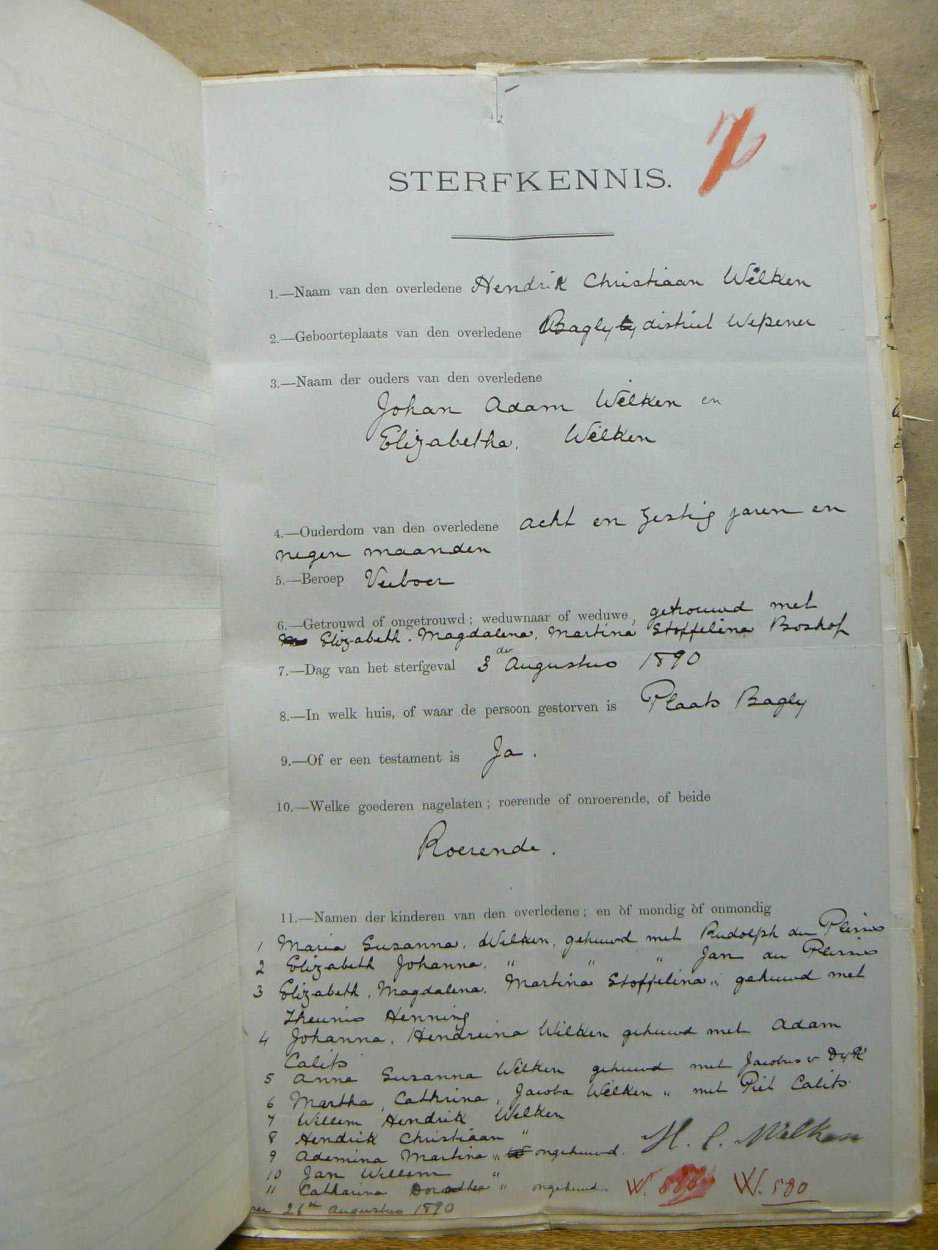 STERFKENNIS.
1.—Naam van den overledene Hendrik Christiaan Wilken
2.—Geboorteplaats van den overledene Bagly distriet Wepener
3.—Naam der ouders van den overledene
Johan Adam Wilken en
Elizabetha. Wilken
4.—Ouderdom van den overledene acht en zestig jaren en
negen maanden
5.—Beroep Veeboer
6.—Getrouwd of ongetrouwd; weduwnaar of weduwe, getrouwd met
Elizabeth. Magdalena, Martina Stoffelina Boshof
7.—Dag van het sterfgeval 3 der Augustus 1890
8.—In welk huis, of waar de persoon gestorven is Plaats Bagly
9.—Of er een testament is Ja.
10.—Welke goederen nagelaten; roerende of onroerende, of beide
Roerende.
11.—Namen der kinderen van den overledene; en òf mondig òf onmondig
1 Maria Susanna. Wilken, gehuwd met Rudolph du Plessis
2 Elizabeth Johanna. " " " Jan du Plessis
3 Elizabeth. Magdalena. Martina Stoffelina " gehuwd met
Theunis Henning
4 Johanna. Hendreina Wilken gehuwd met Adam
Calits
5 Anna Susanna Wilken gehuwd met Jacobus v Dyk
6 Martha, Cathrina, Jacoba Wilken " met Piet Calits
7 Willem Hendrik Wilken
8 Hendrik Christiaan "
9 Ademina Martina " ongehuwd. H. C. Wilken
10 Jan Willem "
11 Catharina Dorothea " ongehuwd. W. 580
26th Augustus 1890